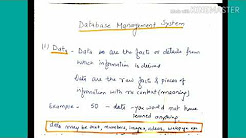 Made with KINEMASTER
Database Management System
(*) Data - Data be are the facts or details from
which information is derived
Data are the raw facts & pieces of
information with no context (meaning)
Example - 50 - data - you would not have
learned anything.
data may be text, numbers, images, videos,